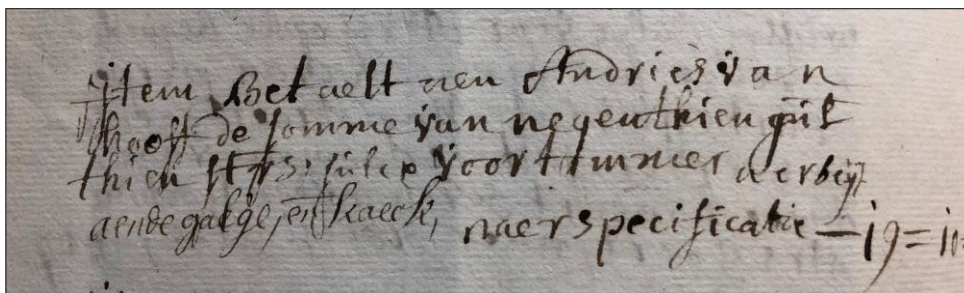 jtem Betaelt aen Andries van
thooft de somme van negenthien gul
thien stvrs sulcx voor timmer aerbeijt
aende galge, en kaeck, naer specificatie — 19 = 10